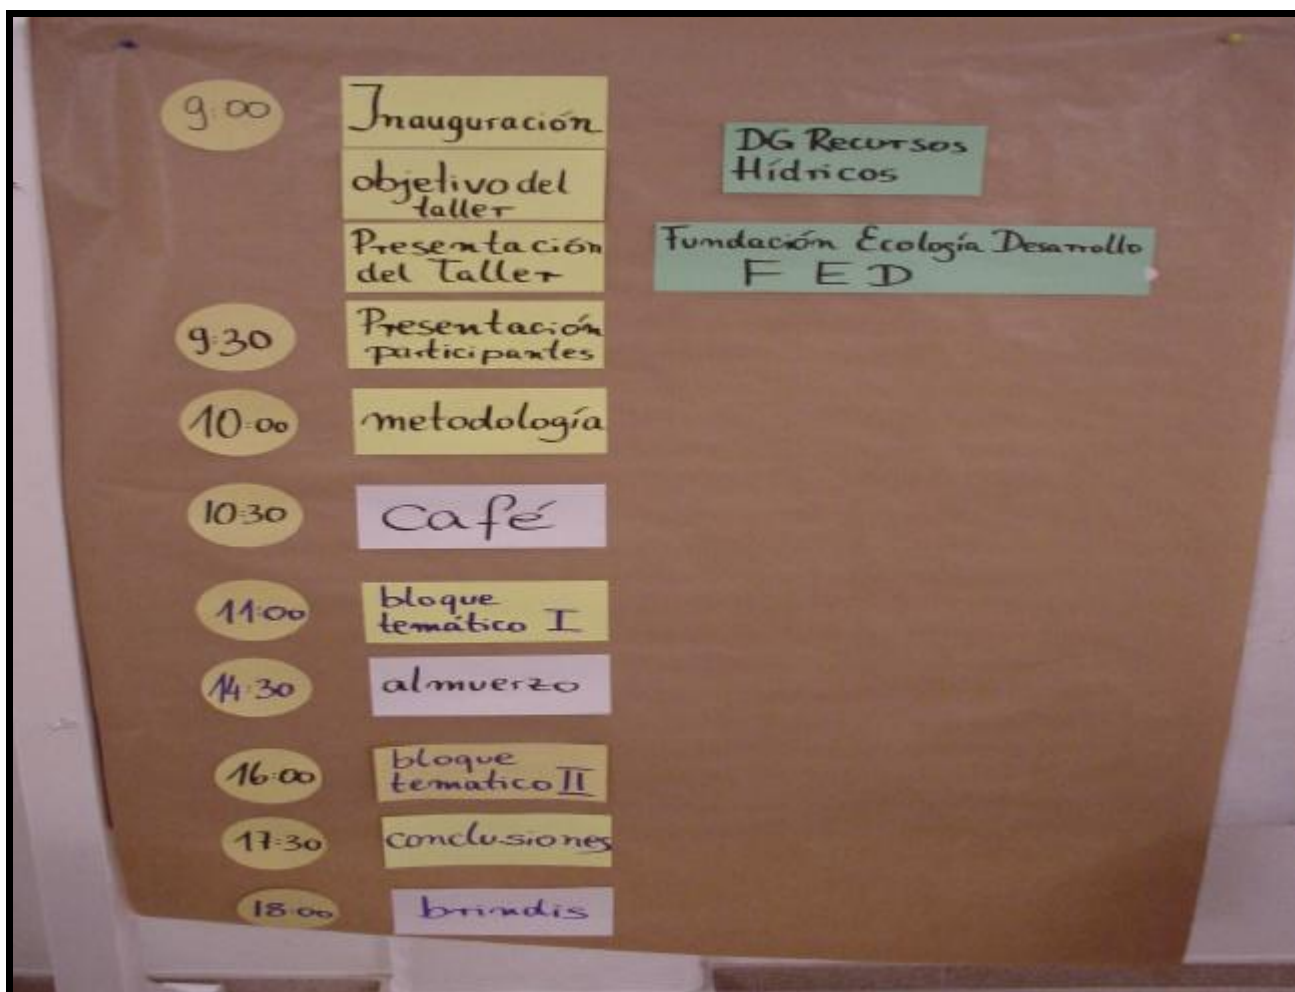 9:00
Inauguración
DG Recursos
Hídricos
objetivo del
taller
Presentación
del Taller
Fundación Ecología Desarrollo
F E D
9:30
Presentación
participantes
10:00
metodología
10:30
Café
11:00
bloque
temático I
14:30
almuerzo
16:00
bloque
tematico II
17:30
conclusiones
18:00
brindis